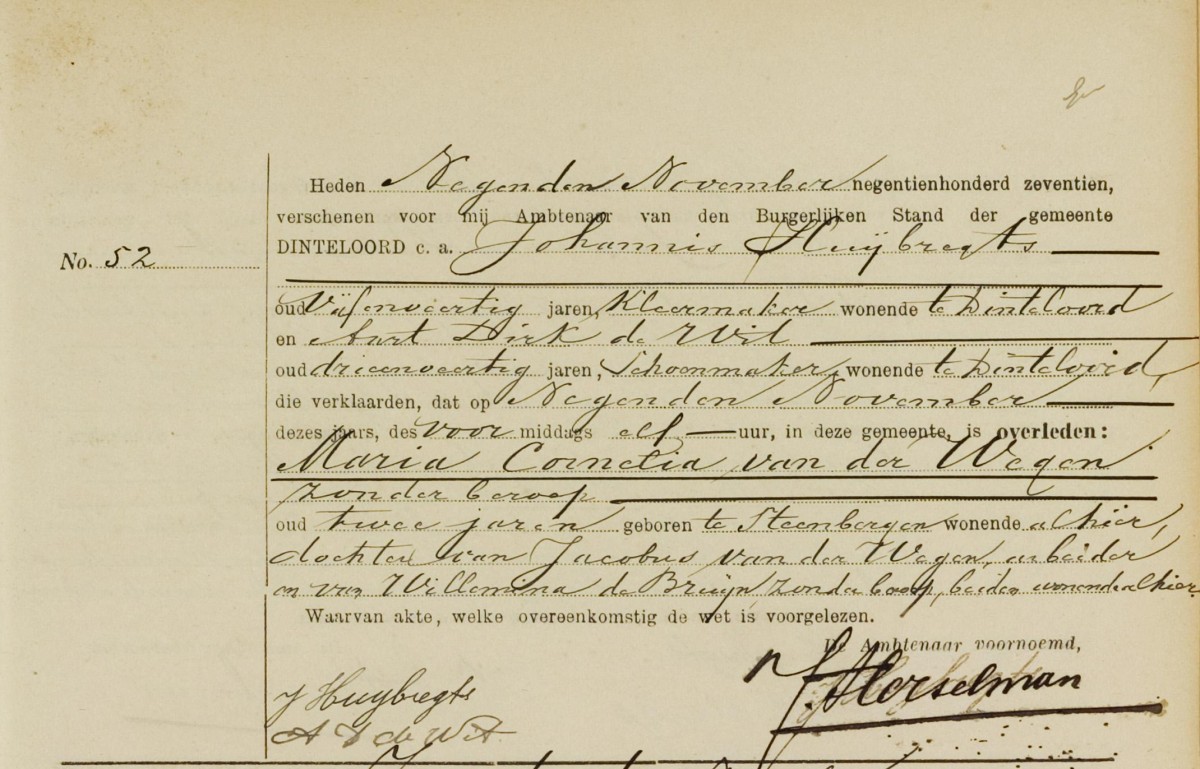 Heden Negenden November negentienhonderd zeventien,
verschenen voor mij Ambtenaar van den Burgerlijken Stand der gemeente
DINTELOORD c. a. Johannis Huijbregts
No. 52
oud Vijfenveertig jaren, Kleermaker wonende te Dinteloord
en Aart Dirk de Wit
oud drieenveertig jaren, Schoenmaker, wonende te Dinteloord,
die verklaarden, dat op Negenden November
dezes jaars, des voor middags elf uur, in deze gemeente, is overleden:
Maria Cornelia van der Wegen
zonder beroep
oud twee jaren geboren te Steenbergen wonende alhier,
dochter van Jacobus van der Wegen, arbeider
en van Willemina de Bruijn, zonder beroep, beiden wonende alhier.
Waarvan akte, welke overeenkomstig de wet is voorgelezen.
De Ambtenaar voornoemd,
J Huybregts
A D de Wit